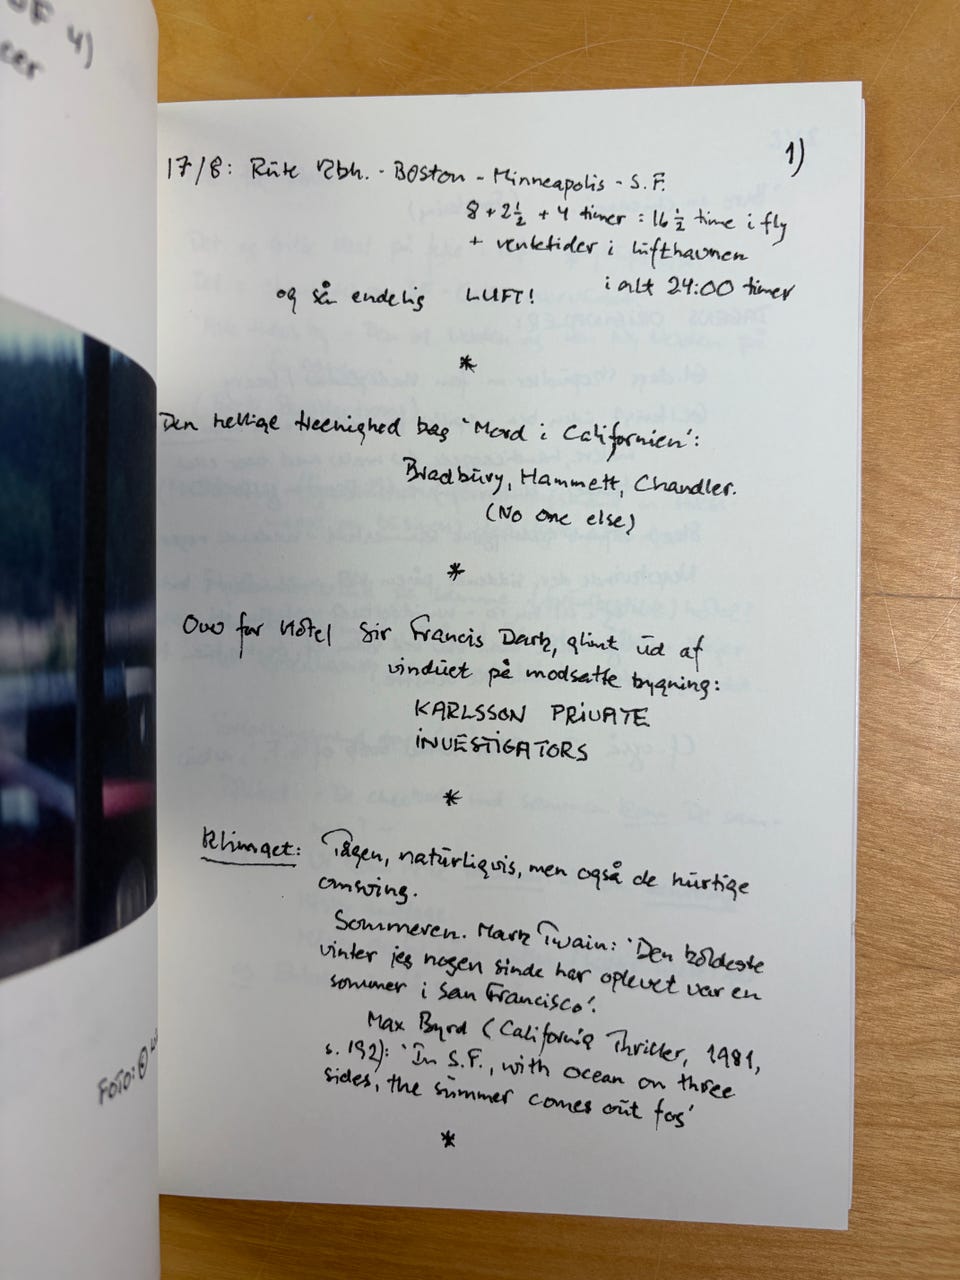 OF 4)
1)
17/8: Rute Kbh. - Boston - Minneapolis - S.F.
8 + 2½ + 4 timer : 16½ time i fly
+ ventetider i lufthavnen
i alt 24:00 timer
og så endelig LUFT!
*
Den hellige treenighed bag 'Mord i Californien':
Bradbury, Hammett, Chandler.
(No one else)
*
Ovo for Hotel Sir Francis Dark, glint ud af
vinduet på modsatte bygning:
KARLSSON PRIVATE
INVESTIGATORS
*
Klimaet: Tågen, naturligvis, men også de hurtige
omsving.
Sommeren. Mark Twain: 'Den koldeste
vinter jeg nogen sinde har oplevet var en
sommer i San Francisco'.
Max Byrd (California Thriller, 1981,
s. 192): 'In S.F., with ocean on three
sides, the summer comes out fog'
*
FOTO: ©